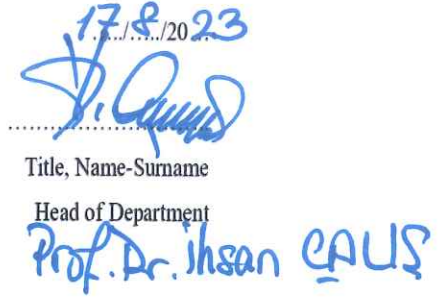 17/8/2023
Title, Name-Surname
Head of Department
Prof. Dr. İhsan ÇALIŞ